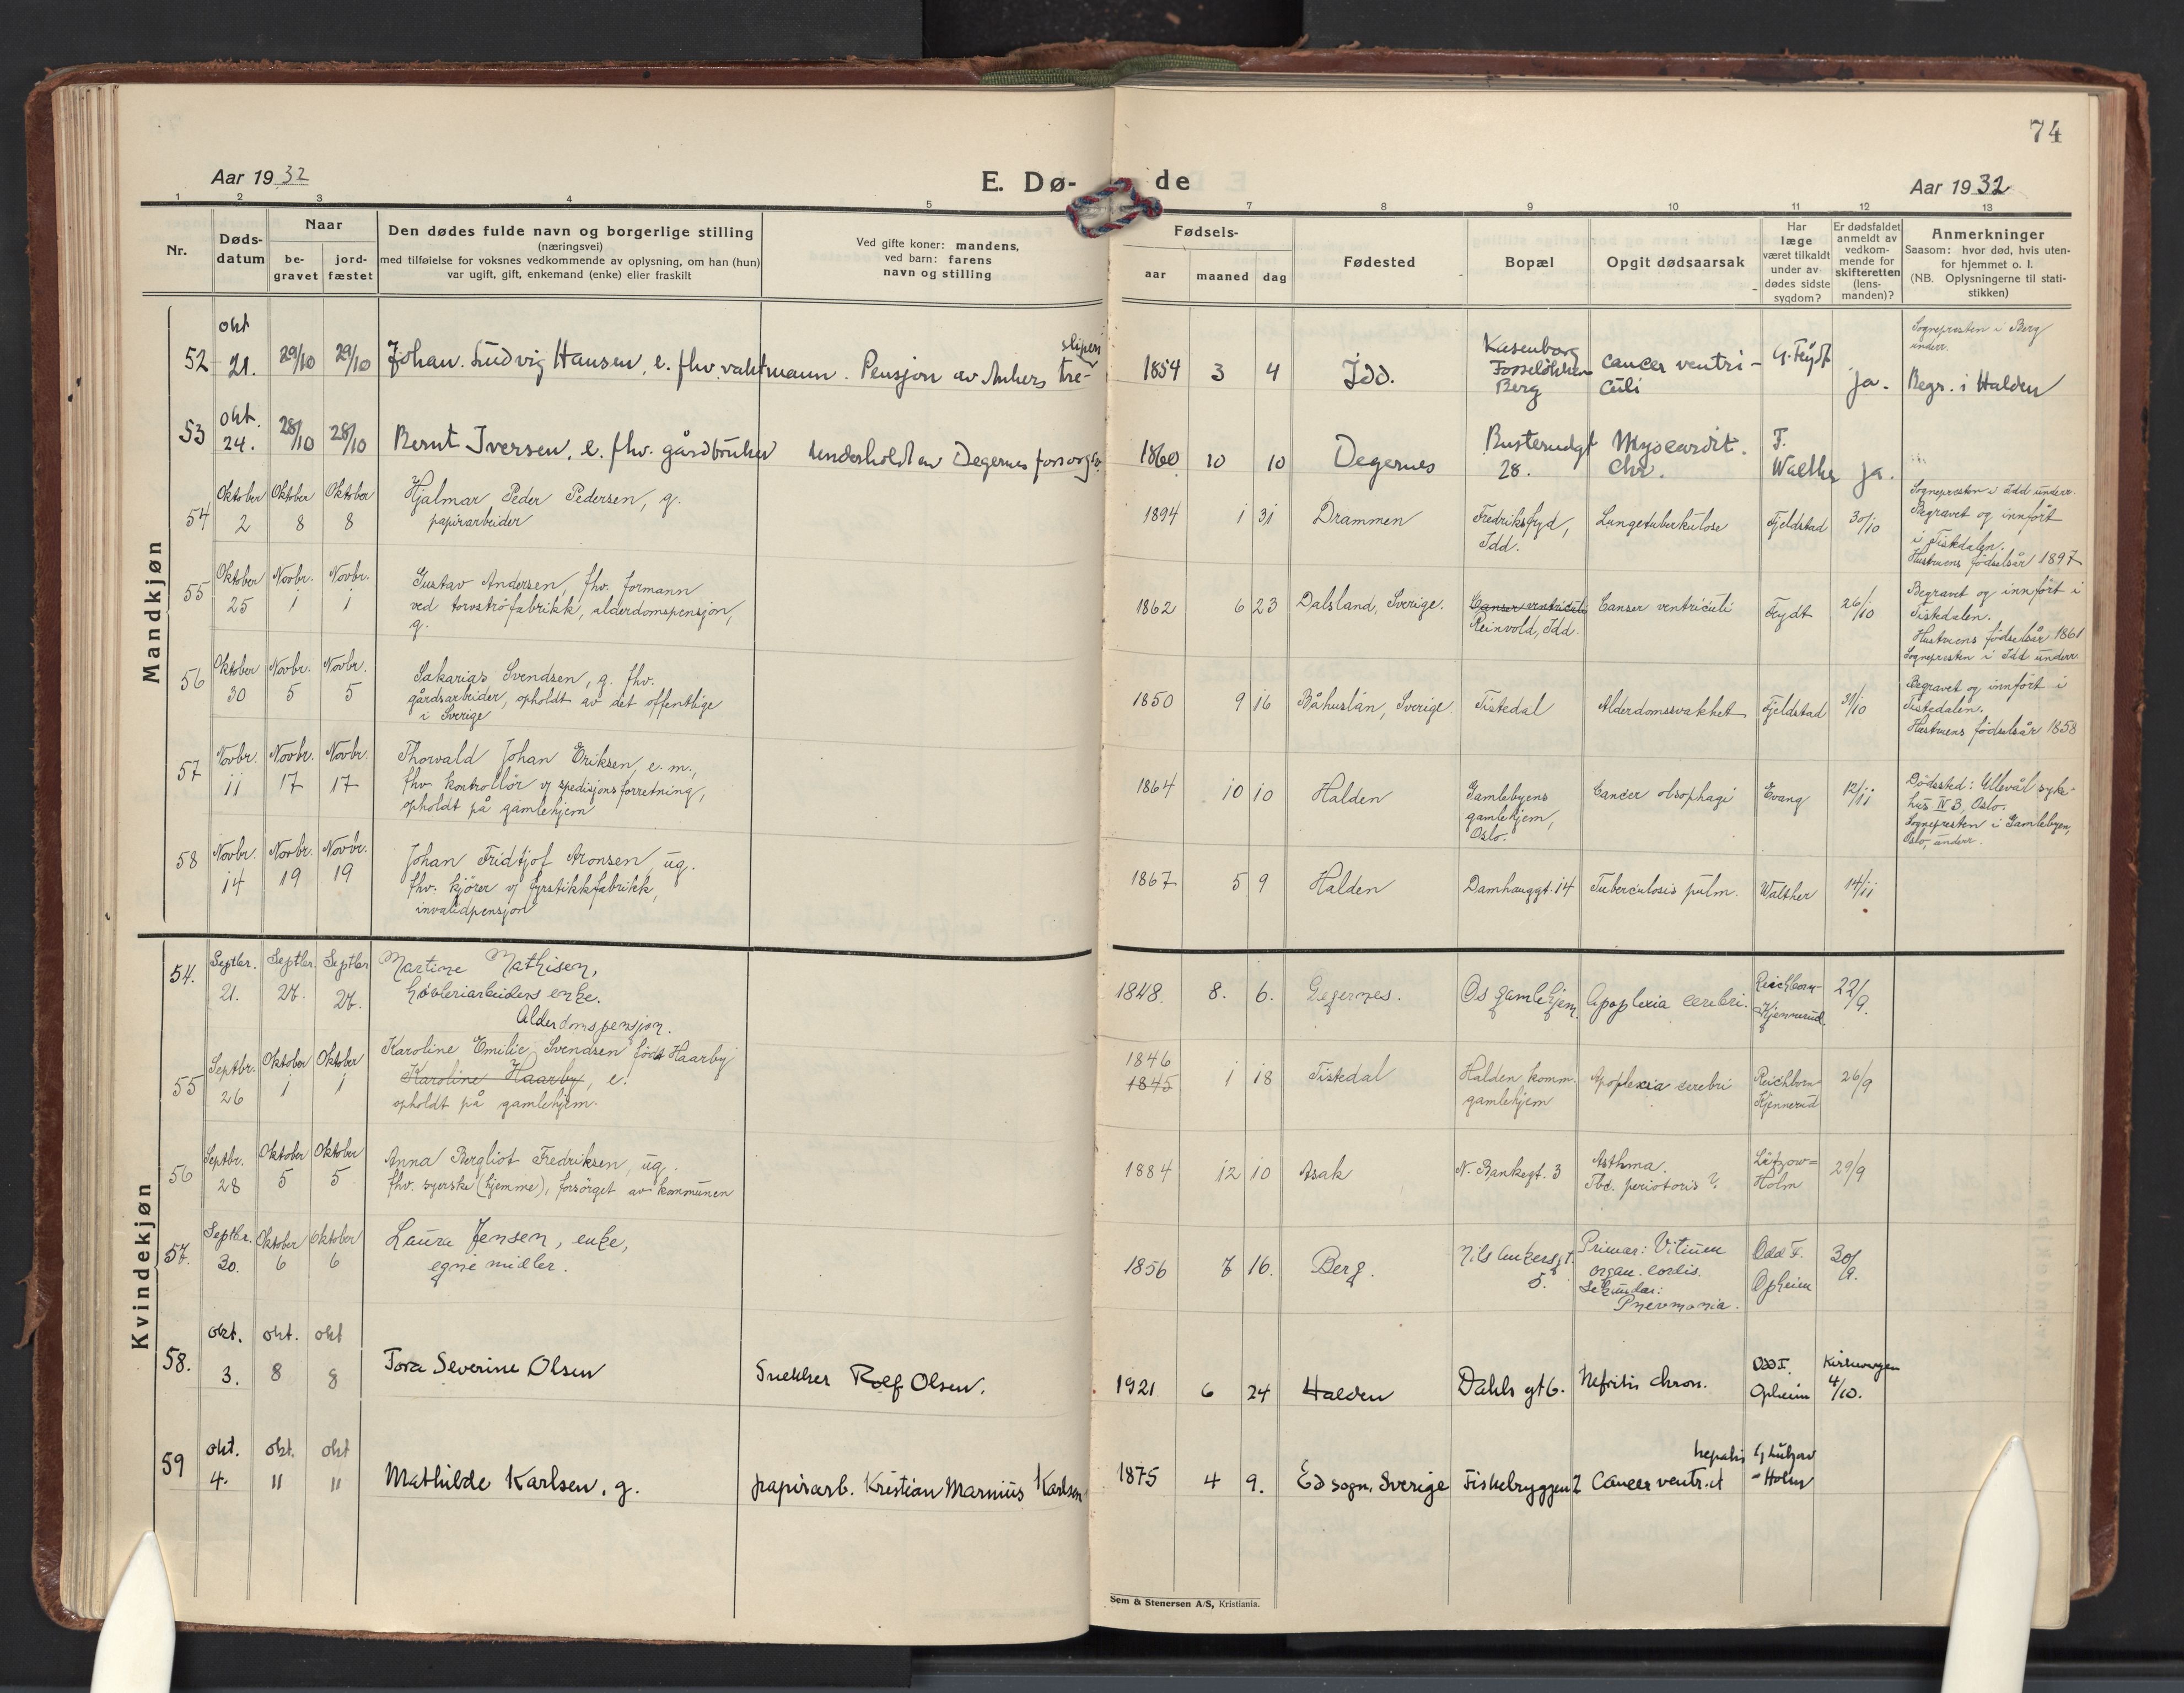 74
Aar 1932
E. Dø-
de
Aar 1932
1 2 3 4 5 7 8 9 10 11 12 13
Nr.
Døds-
datum
Naar
be-
gravet
jord-
fæstet
Den dødes fulde navn og borgerlige stilling
(næringsvei)
med tilføielse for voksnes vedkommende av oplysning, om han (hun)
var ugift, gift, enkemand (enke) eller fraskilt
Ved gifte koner: mandens,
ved barn: farens
navn og stilling
Fødsels-
aar maaned dag
Fødested
Bopæl
Opgit dødsaarsak
Har
læge
været tilkaldt
under av-
dødes sidste
sygdom?
Er dødsfaldet
anmeldt av
vedkom-
mende for
skifteretten
(lens-
manden)?
Anmerkninger
Saasom: hvor død, hvis uten-
for hjemmet o. l.
(NB. Oplysningerne til stati-
stikken)
Mandkjøn
52 okt 21. 29/10 29/10 Johan Ludvig Hansen, e. fhv. vaktmann. Pensjon av Ankers tre-
sliperi
1854 3 4 Idd.
Fosseløkken
Berg
cancer ventri-
culi
ja.
Sognepresten i Berg
underr.
Begr. i Halden
53 okt. 24. 28/10 28/10 Bernt Iversen, e. fhv. gårdbruker underholdt av Degernes forsorgsv.
1860 10 10 Degernes
Busterudgt
28.
Myocardit.
chr.
F.
Walther ja.
54 Oktober 2 Oktober 8 Oktober 8
Hjalmar Peder Pedersen, g.
papirarbeider
1894 1 31 Drammen
Fredriksfryd,
Idd.
Lungetuberkulose Fjeldstad 30/10
Sognepresten i Idd underr.
Begravet og innført
i Tistedalen.
Hustruens fødselsår 1897
55 Oktober 25 Novbr. 1 Novbr. 1
Gustav Andersen, fhv. formann
ved torvströfabrikk, alderdomspensjon,
g.
1862 6 23 Dalsland, Sverige.
Canser ventriculi
Reinvold, Idd.
Canser ventriculi Frydt 26/10
Begravet og innført i
Tistedalen.
Hustruens fødselsår 1861
Sognepresten i Idd underr.
56 Oktober 30 Novbr. 5 Novbr. 5
Sakarias Svendsen, g. fhv.
gårdsarbeider, opholdt av det offentlige
i Sverige
1850 9 16 Båhuslän, Sverige. Tistedal Alderdomssvakhet Fjeldstad 31/10
Begravet og innført i
Tistedalen.
Hustruens fødselsår 1858
57 Novbr. 11 Novbr. 17 Novbr. 17
Thorvald Johan Eriksen, e. m.,
fhv. kontrollør v/ spedisjonsforretning,
opholdt på gamlehjem
1864 10 10 Halden
Gamlebyens
gamlehjem,
Oslo.
Cancer oesophagi Evang 12/11
Dødssted: Ullevål syke-
hus IV B, Oslo.
Sognepresten i Gamlebyen,
Oslo, underr.
58 Novbr. 14 Novbr. 19 Novbr. 19
Johan Fridtjof Aronsen, ug.
fhv. kjører v/ fyrstikkfabrikk,
invalidpensjon
1867 5 9 Halden Damhauggt. 14 Tuberculosis pulm. Walther 14/11
Kvindekjøn
54. Septbr. 21. Septbr. 27. Septbr. 27.
Martine Mathisen,
høvleriarbeiders enke.
Alderdomspensjon.
1848. 8. 6. Degernes. Os gamlehjem. Apoplexia cerebri.
Reichborn-
Kjennerud. 22/9.
55 Septbr. 26 Oktober 1 Oktober 1
Karoline Emilie Svendsen født Haarby
Karoline Haarby, e.
opholdt på gamlehjem.
1846
1845 1 18 Tistedal
Halden komm.
gamlehjem
Apoplexia cerebri
Reichborn
Kjennerud 26/9
56 Septbr. 28 Oktober 5 Oktober 5
Anna Bergliot Fredriksen, ug.
fhv. syerske (hjemme), forsørget av kommunen
1884 12 10 Asak N. Bankegt. 3
Asthma.
Lützow=
Holm 29/9
57. Septbr. 30. Oktober 6 Oktober 6
Laura Jensen, enke,
egne midler.
1856 7 16. Berg.
Nils Ankersgt.
5.
Primær: Vitium
organ. cordis.
Sekundær:
Pnevmonia.
Odd F.
Opheim 30/9.
58. okt. 3. okt. 8 okt 8
Tora Severine Olsen Snekker Rolf Olsen.
1921 6 24 Halden Dahls gt 6. Nefritis chron.
Odd F.
Opheim
Kirkevergen
4/10.
59 okt. 4. okt. 11 okt 11
Mathilde Karlsen, g. papirarb. Kristian Marinius Karlsen
1875 4 9. Ed sogn, Sverige Fiskebryggen 2
Cancer ventr. et
hepatis
Lützow
= Holm
Sem & Stenersen A/S, Kristiania.